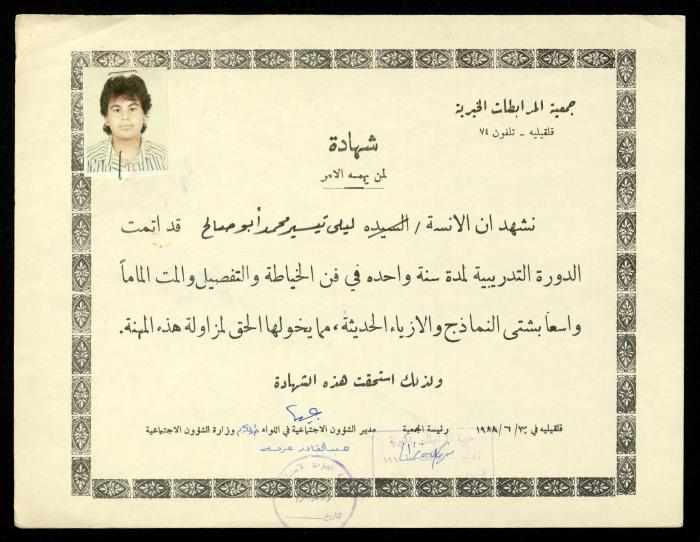 جمعية المرابطات الخيرية
قلقيليه - تلفون ٧٤
شهادة
لمن يهمه الامر
نشهد ان الانسة / السيده ليلى تيسير محمد أبو صالح قد اتمت
الدورة التدريبية لمدة سنة واحده في فن الخياطة والتفصيل والمت الماماً
واسعاً بشتى النماذج والازياء الحديثة، مما يخولها الحق لمزاولة هذه المهنة.
ولذلك استحقت هذه الشهادة
قلقيليه في ٣٠ / ٦ / ١٩٨٨ رئيسة الجمعية مدير الشؤون الاجتماعية في اللواء وزارة الشؤون الاجتماعية
جمعية المرابطات الخيرية